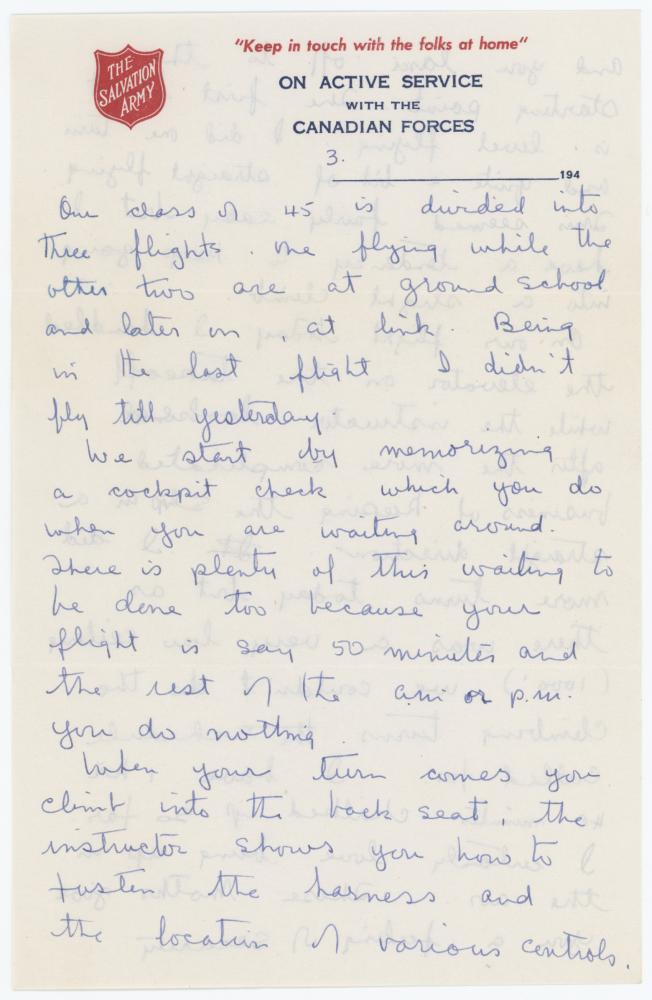 THE
SALVATION
ARMY
"Keep in touch with the folks at home"
ON ACTIVE SERVICE
WITH THE
CANADIAN FORCES
3.
194
Our class of 45 is divided into
three flights. one flying while the
other two are at ground school
and later on, at link. Being
in the last flight I didn't
fly till yesterday.
We start by memorizing
a cockpit check which you do
when you are waiting around.
There is plenty of this waiting to
be done too because your
flight is say 50 minutes and
the rest of the a.m. or p.m.
you do nothing.
When your turn comes you
climb into the back seat, the
instructor shows you how to
fasten the harness and
the location of various controls.